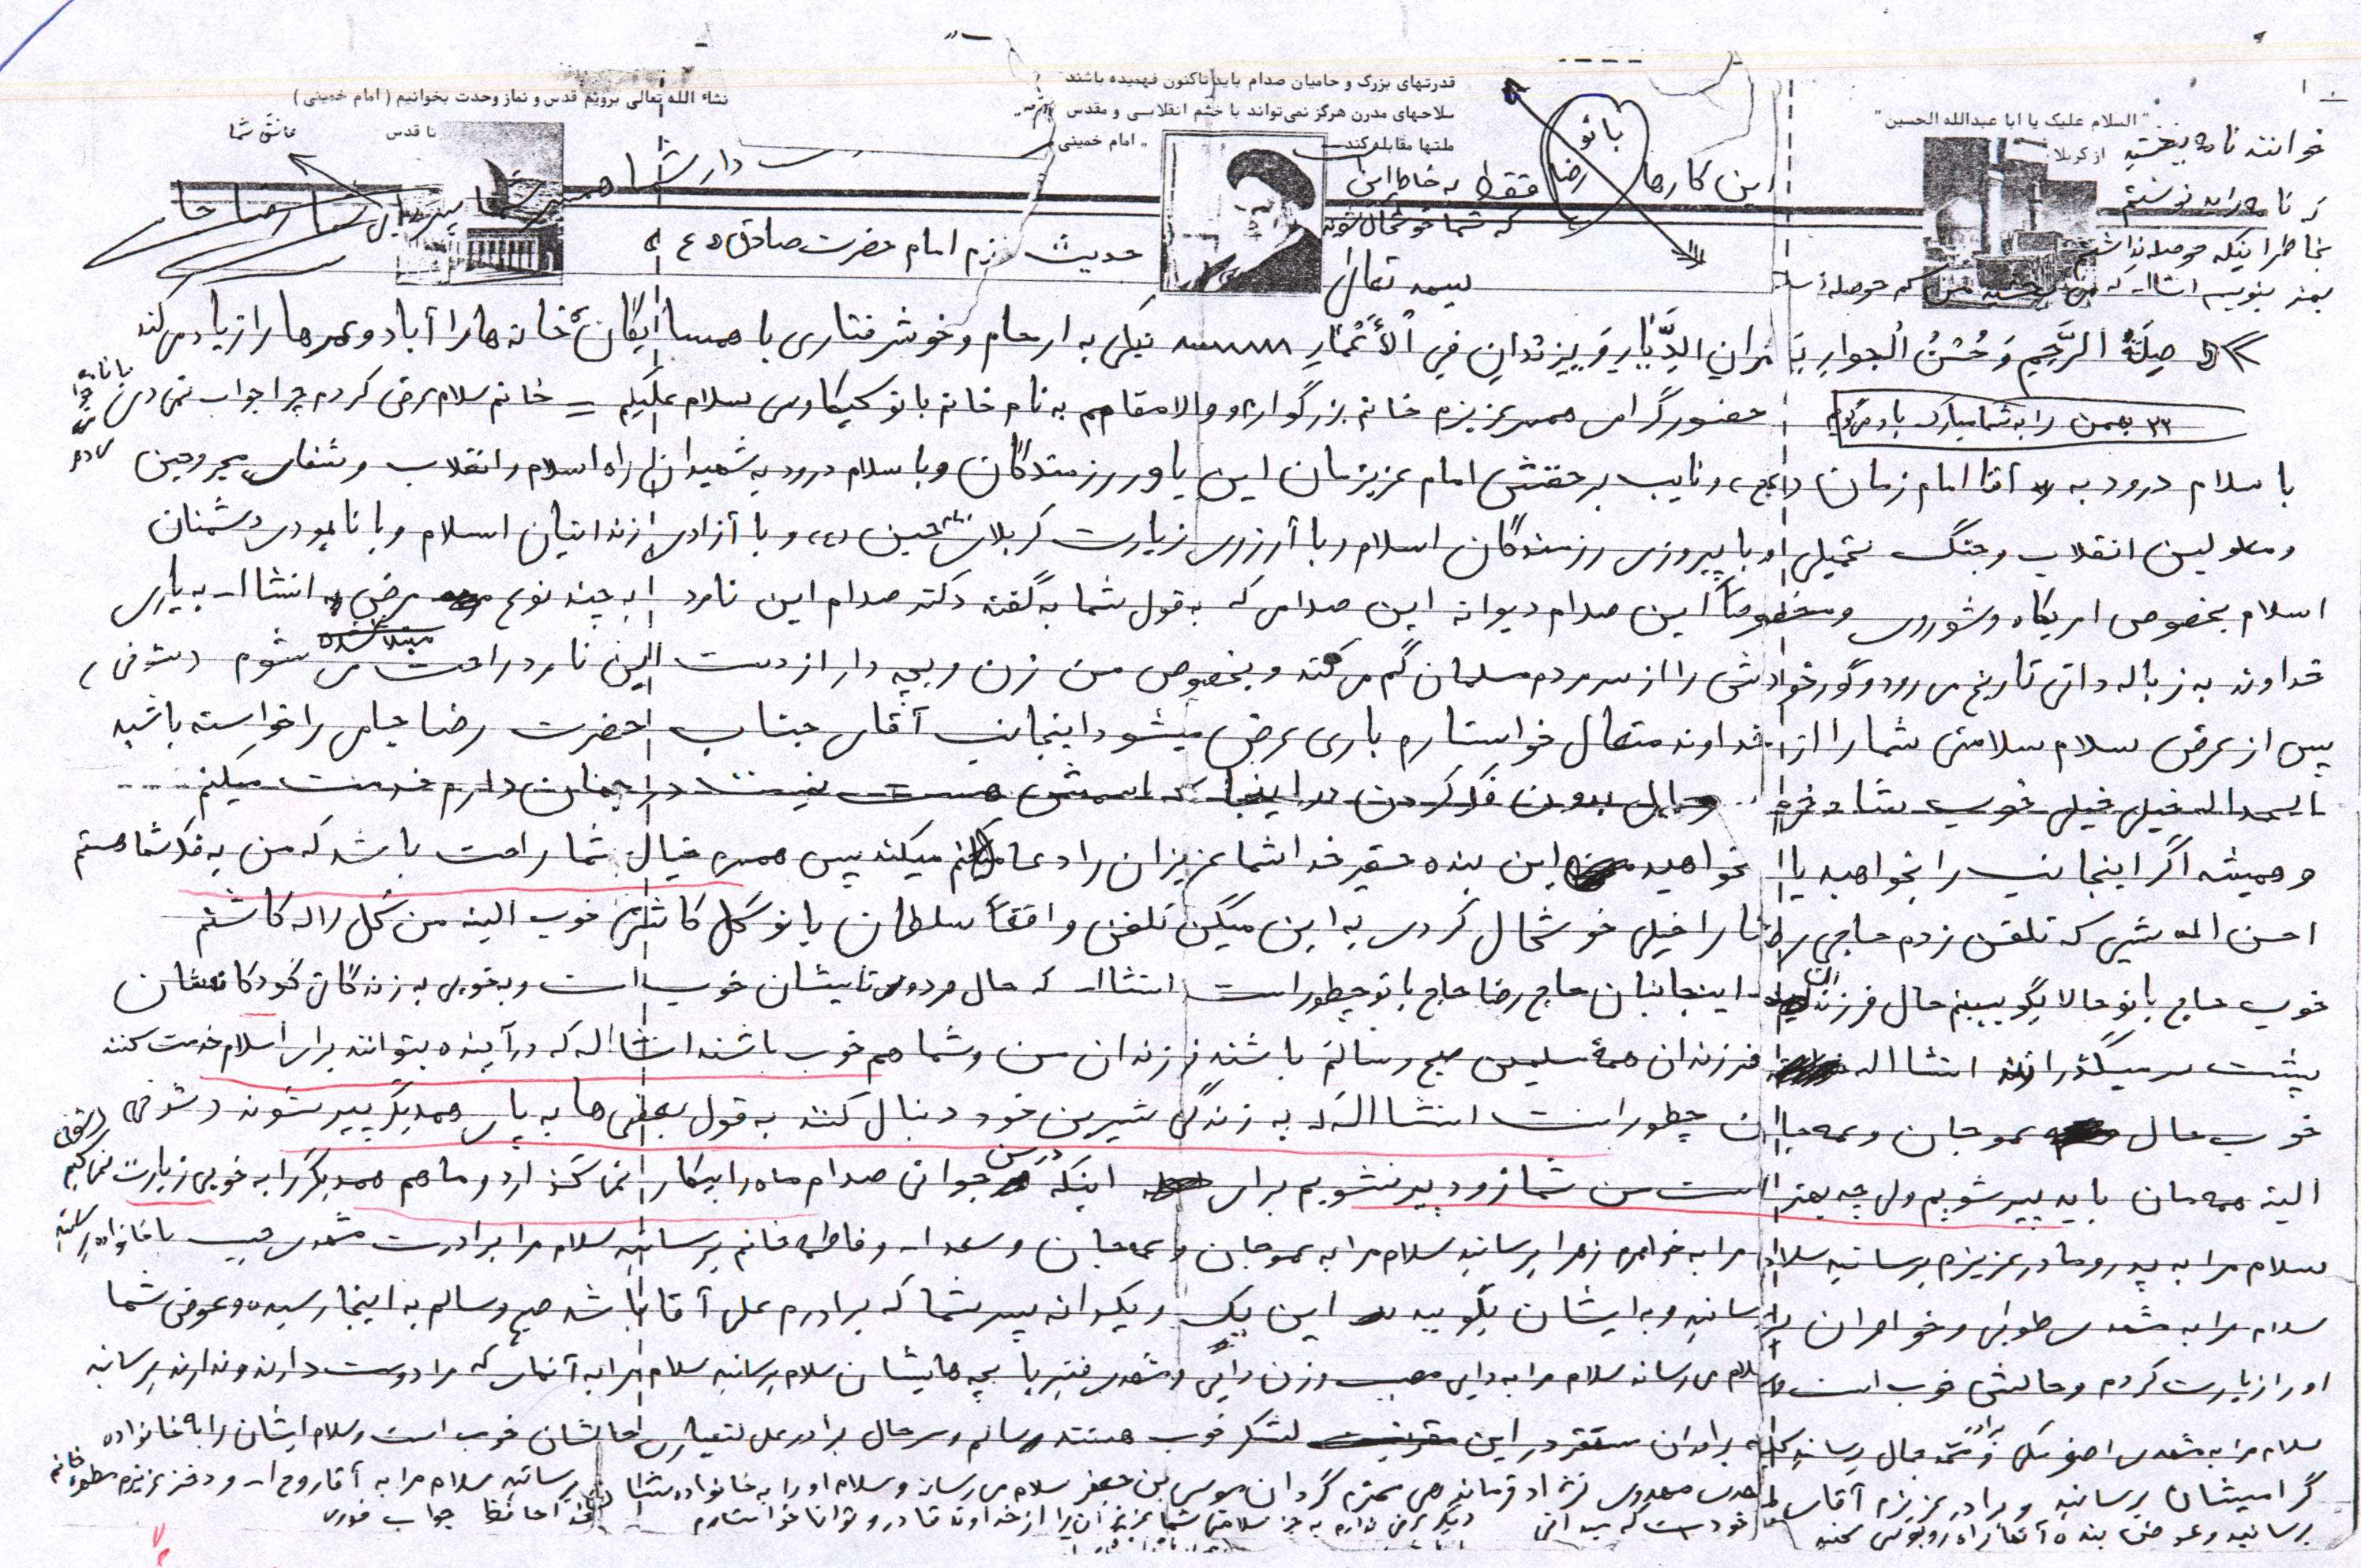 قدرتهای بزرگ و حامیان صدام باید تاکنون فهمیده باشند
سلاحهای مدرن هرگز نمی‌تواند با خشم انقلابی و مقدس
ملتها مقابله کند
امام خمینی
نشاء الله تعالی برویم قدس و نماز وحدت بخوانیم (امام خمینی)
تا قدس
"السلام علیک یا ابا عبدالله الحسین"
از کربلا
عاشق شما
بانو
رضا
این کارها
فقط به خاطر این
که شما خوشحال شوید
خواننده نامه ببخشید
که نامه را بد نوشتم
بخاطر اینکه حوصله نداشتم
بسمه تعالی
حدیث رزم امام حضرت صادق (ع)
صِلَةُ الرَّحِمِ وَ حُسْنُ الْجِوارِ یَعْمُرانِ الدِّیارَ وَ یَزیدانِ فِی الْأَعْمارِ نیکی به ارحام و خوش رفتاری با همسایگان خانه ها را آباد و عمرها را زیاد می کند
۲۲ بهمن را به شما مبارک باد می گویم
حضور گرامی همسر عزیزم خانم بزرگوار و والامقام به نام خانم بانو کیکاوسی سلام علیکم = خانم سلام عرض کردم چرا جواب نمی دهی
با سلام درود به آقا امام زمان (عج) و نایب بر حقش امام عزیزمان این یاور رزمندگان و با سلام درود به شهیدان راه اسلام و انقلاب و شفای مجروحین
و معلولین انقلاب و جنگ تحمیلی و با پیروزی رزمندگان اسلام و با آرزوی زیارت کربلای حسین (ع) و با آزادی زندانیان اسلام و با نابودی دشمنان
اسلام بخصوص امریکا و شوروی و مخصوصاً این صدام دیوانه این صدامی که به قول شما به گفته دکتر صدام این نامرد به چند نوع مرض مبتلا شده انشاا... به یاری
خداوند به زباله دانی تاریخ می رود و گور خودش را از سر مردم مسلمان گم می کند و بخصوص من زن و بچه دار از دست این نامرد راحت می شوم (شوخی)
پس از عرض سلام سلامتی شما را از خداوند متعال خواستارم باری عرض میشود اینجانب آقای جناب حضرت رضا جامی را خواسته باشید
الحمداله خیلی خیلی خوب شاد و خرم و خیال بدون فکر کردن در اینجا که اسمش هست نیست در جهان دارم خدمت میکنم
و همیشه اگر اینجانب را بخواهید یا نخواهید این بنده حقیر خدا شما عزیزان را دعا میکند پس همسرم خیال شما راحت باشد که من به فکر شما هستم
احسن اله شبی که تلفن زدم حاجی رضا را خیلی خوشحال کردی به این میگن تلفن واقعاً سلطان بانو گل کاشتی خوب البته من گل لاله کاشتم
خوب حاج بانو حالا بگو ببینم حال فرزندان اینجانبان حاج رضا حاج بانو چطور است انشاا... که حال هر دوی تایشان خوب است و به خوبی به زندگانی کودکانه‌شان
پشت سر میگذرانند انشااله فرزندان همهٔ مسلمین صحیح و سالم باشند فرزندان من و شما هم خوب باشند انشااله که در آینده بتوانند برای اسلام خدمت کنند
خوب حال عمو جان و عمه جان چطور است انشااله که به زندگی شیرین خود دنبال کنند به قول بعضی ها به پای همدیگر پیر شوند (شوخی)
البته همه مان باید پیر شویم ولی چه بهتر است من شما زود پیر نشویم برای اینکه جوانی صدام ماه را بیکار نمی گذارد و ما هم همدیگر را به خوبی زیارت نمی کنیم
سلام مرا به پدر و مادر عزیزم برسانید سلام مرا به خواهرم زهرا برسانید سلام مرا به عمو جان و عمه جان و سعدا... و فاطمه خانم برسانید سلام مرا برادرت مشهدی حبیب با خانواده برسانید
سلام مرا به مشهدی طوبی و خواهران برسانید و به ایشان بگویید این یک و یکدانه پسر شما که برادرم علی آقا باشد صحیح و سالم به اینجا رسیده و عوض شما
او را زیارت کردم و حالش خوب است سلام می رساند سلام مرا به دایی و زن دایی و بچه هایشان سلام برسانید سلام مرا به آنهایی که مرا دوست دارند و ندارند برسانید
سلام مرا به مشهدی برسانید برادران مستقر در این لشکر خوب هستند و سالم و سرحال برادر علی حالشان خوب است و سلام ایشان را به خانواده
گرامیشان برسانید و برادر عزیزم آقای مهدی نژاد فرمانده ی محترم گردان موسی بن جعفر سلام می رساند و سلام او را به خانواده برسانید سلام مرا به آقا روح ا... و دختر عزیزم
برسانید و عوض بنده آنها را روبوسی کنید خودت که میدانی دیگر عرضی ندارم به جز سلامتی شما عزیزان را از خداوند قادر و توانا خواستارم خداحافظ جواب فوری